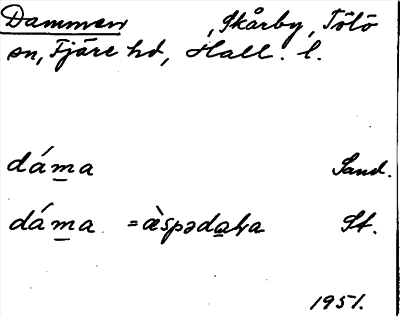 Dammen , Skårby, Tölö
sn, Fjäre hd, Hall. l.
dáma Sand.
dáma = æ̀spədaka St.
1951.